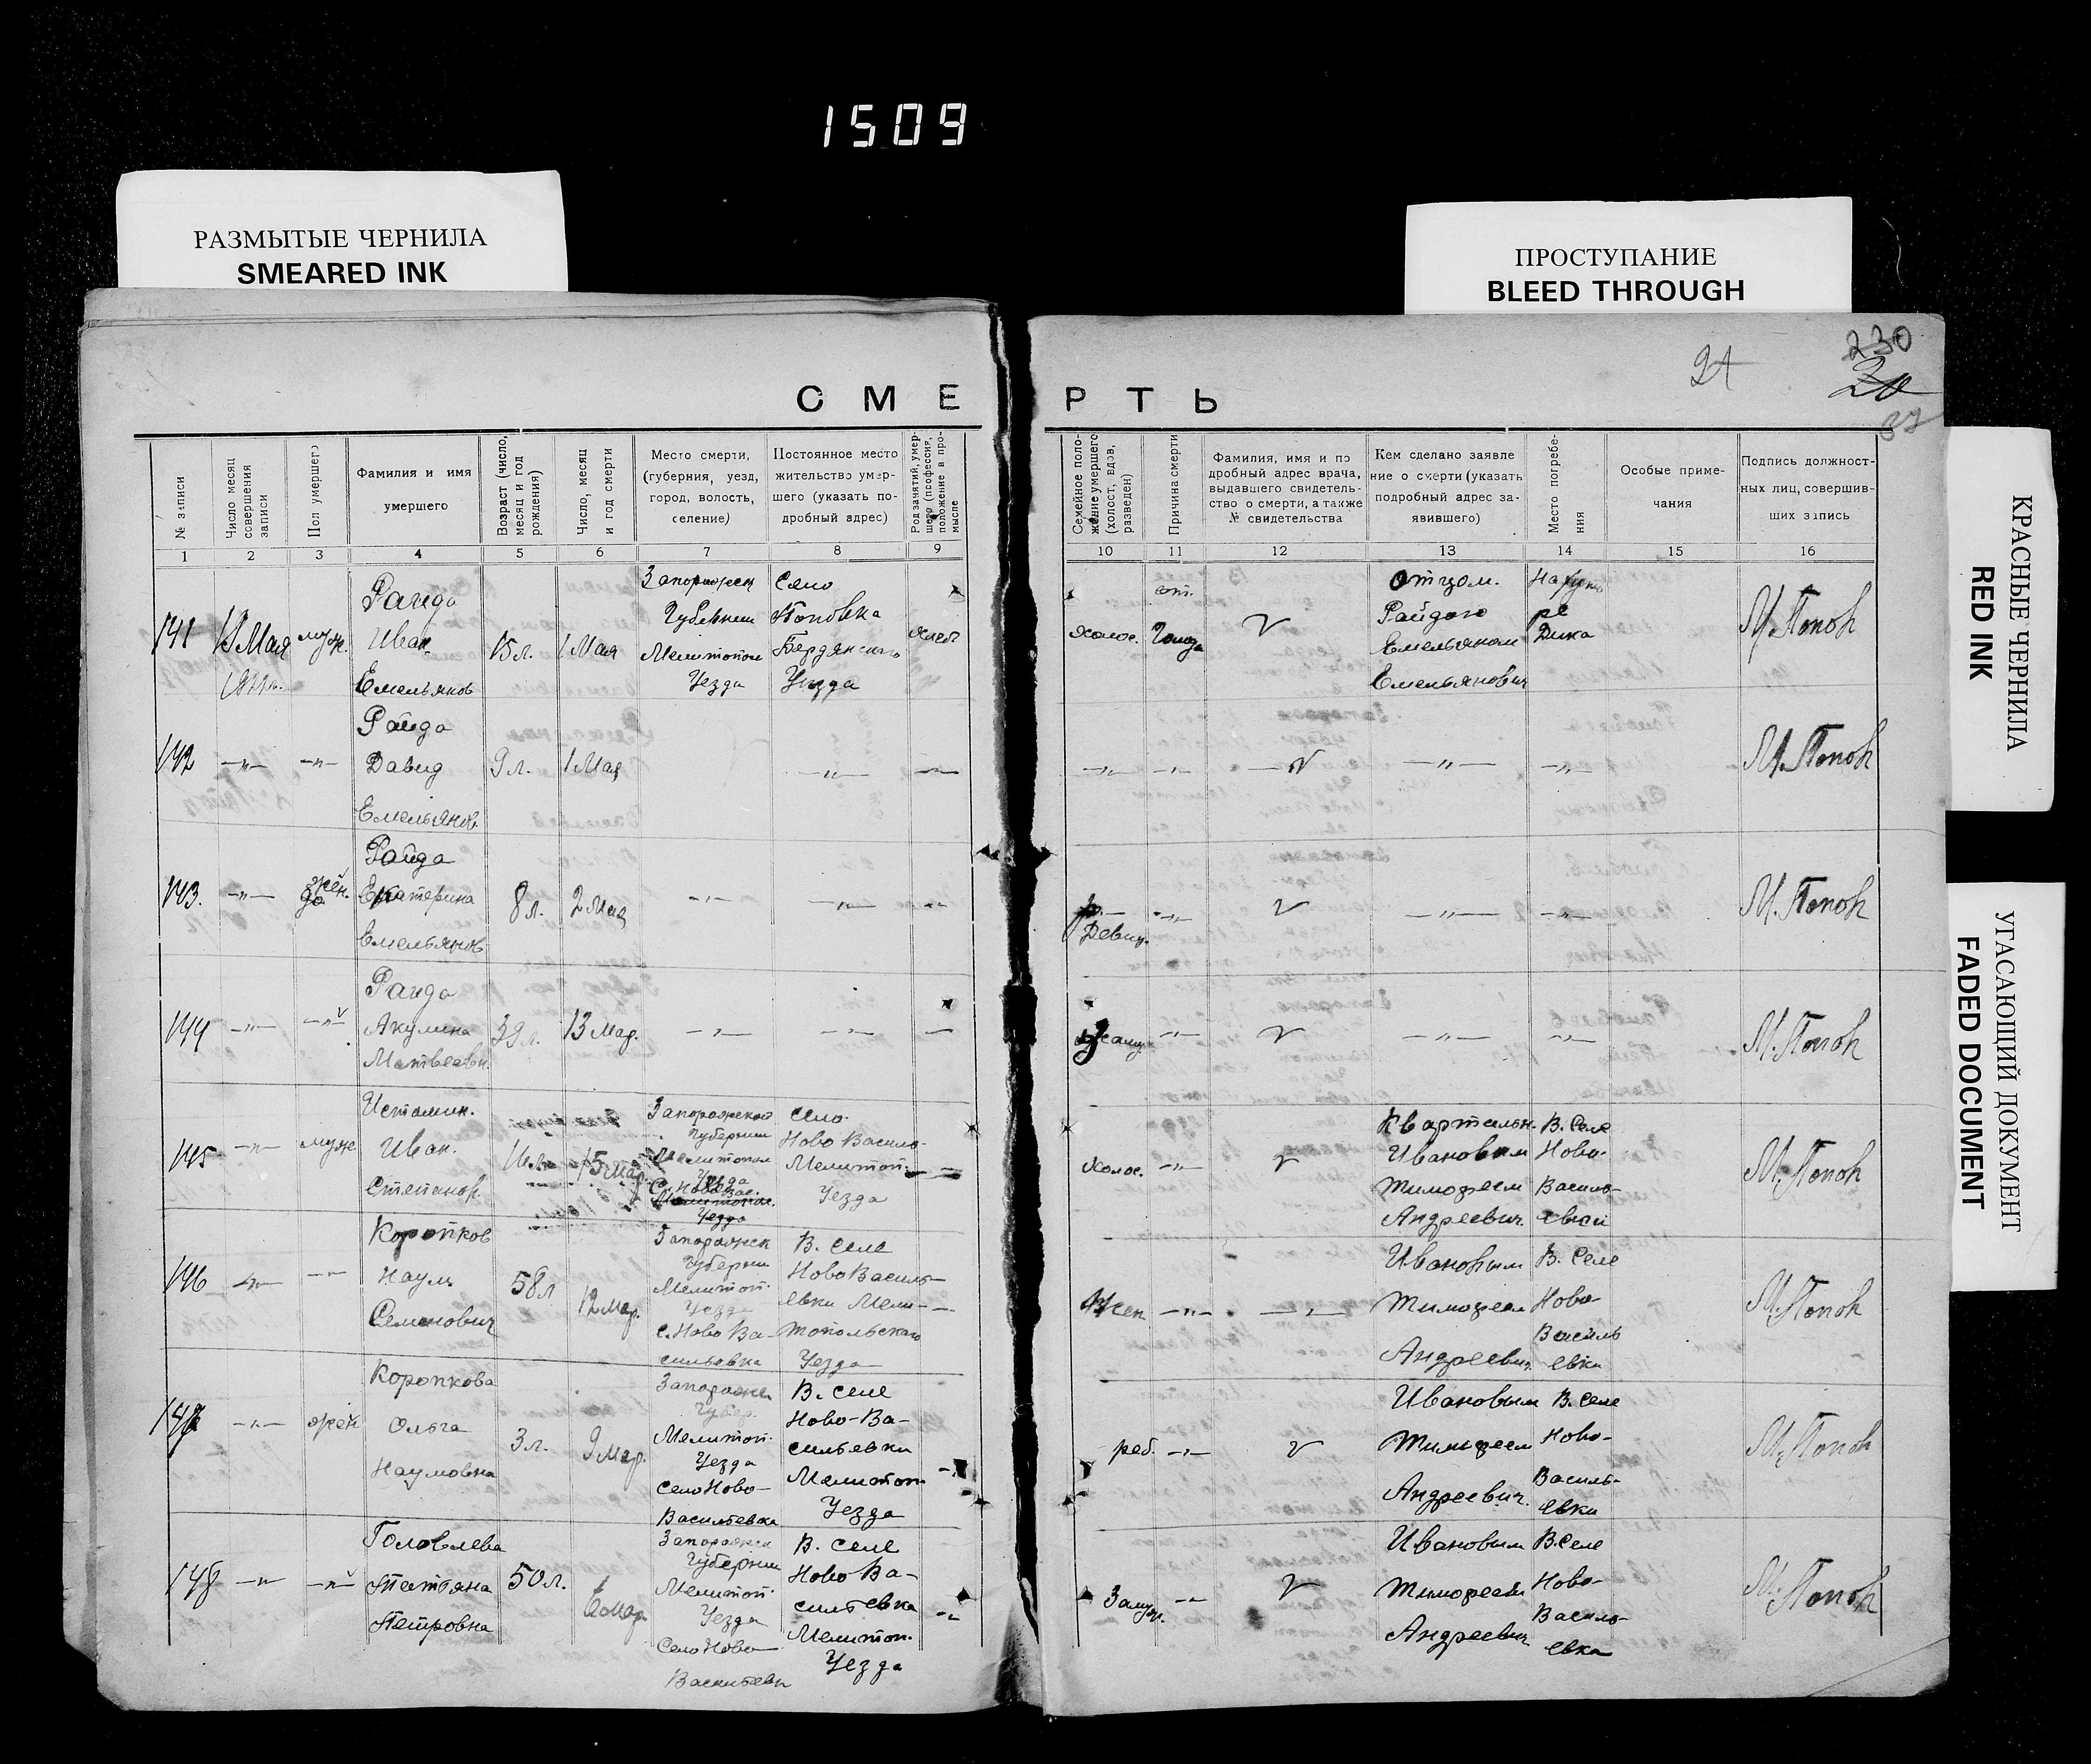 1509
РАЗМЫТЫЕ ЧЕРНИЛА
SMEARED INK
ПРОСТУПАНИЕ
BLEED THROUGH
КРАСНЫЕ ЧЕРНИЛА
RED INK
УГАСАЮЩИЙ ДОКУМЕНТ
FADED DOCUMENT
21
230
20
С М Е Р Т Ь
№ записи
Число месяц совершения записи
Пол умершего
Фамилия и имя умершего
Возраст (число, месяц и год рождения)
Число, месяц и год смерти
Место смерти, (губерния, уезд, город, волость, селение)
Постоянное место жительство умершего (указать подробный адрес)
Род занятий, умершего (профессия, положение в промысле
Семейное положение умершего (холост, вдов, разведен)
Причина смерти
Фамилия, имя и подробный адрес врача, выдавшего свидетельство о смерти, а также № свидетельства
Кем сделано заявление о смерти (указать подробный адрес заявившего)
Место погребения
Особые примечания
Подпись должностных лиц, совершивших запись
1 2 3 4 5 6 7 8 9 10 11 12 13 14 15 16
141 19 Мая муж. Райда Иван Емельянов 15 л. 1 Мая
Губернии
Уезда
Село Поповка Бердянского Уезда
холос. Отцом. Райдою Емельяном Емельянович
М. Попов
142 —„— —„— Райда Давид Емельянов. 9 л. 1 Мая
—„— —„— —„— —„— —„— —„—
М. Попов
143. —„— жен. Райда Екатерина Емельянов 8 л. 2 Мая
—„— —„— —„— Девиц. —„— —„— —„—
М. Попов
144 —„— —„— Райда Акулина Матвеевн. 39 л. 13 Мар.
—„— —„— — Замуж —„— —„— —„—
М. Попов
145 —„— муж Иван. Степанов. 15 Мар.
Запорожской Губернии Мелитопол Уезда
С. Ново Вас.
Уезда
Село Ново Василь- Мелитоп. Уезда
Холос. —„— Квартальн. Ивановым Тимофеем Андреевич. В. Селе Ново-Василь-евки
М. Попов
146 —„— —„— Коропков Наум Семенович 58 л 12 Мар.
Запорожск Губерни Мелитоп. Уезда С. Ново Ва-сильевка
В. Селе Ново Василь-евки Мели-топольскаго Уезда
Жен —„— —„— Ивановым Тимофеем Андреевич. В. Селе Ново-Василь евки
М. Попов
147 —„— жен Коропкова Ольга Наумовна 3 л. 9 Мар.
Запорожск Губер. Мелитоп. Уезда Село Ново-Васильевка
В. Селе Ново-Ва-сильевки Мелитоп Уезда
реб. —„— Ивановым Тимофеем Андреевич. В. Селе Ново-Василь-евки
М. Попов
148 —„— —„— Головлева Татьяна Петровна 50 л. 6 Мар.
Запорожск Губернии Мелитоп. Уезда Село Ново-Васильевк
В. Селе Ново Ва-сильевка Мелитоп. Уезда
Замуж. —„— Ивановым Тимофеем Андреевич В. Селе Ново-Василь-евка
М. Попов